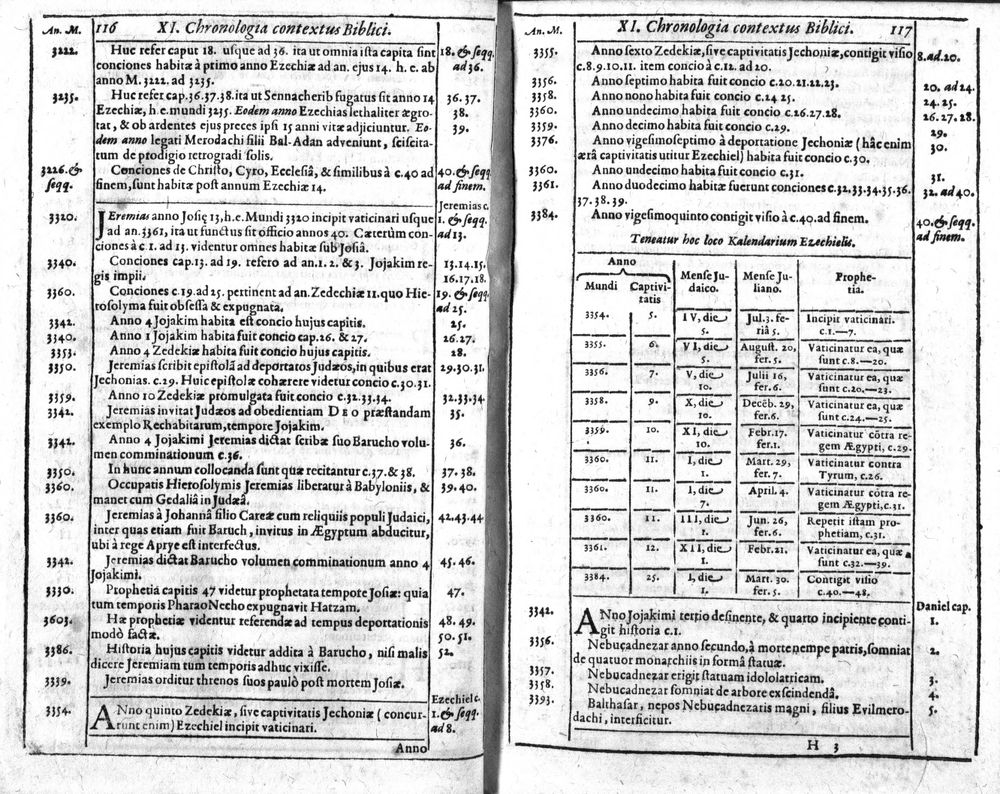 An. M. 116 XI. Chronologia contextus Biblici.
3222. Huc refer caput 18. usque ad 36. ita ut omnia ista capita sint 18. & seqq.
conciones habitæ à primo anno Ezechiæ ad an. ejus 14. h. e. ab ad 36.
anno M. 3222. ad 3235.
3235. Huc refer cap. 36. 37. 38. ita ut Sennacherib fugatus sit anno 14 36. 37.
Ezechiæ, h e. mundi 3235. Eodem anno Ezechias lethaliter ægro- 38.
tat, & ob ardentes ejus preces ipsi 15 anni vitæ adjiciuntur. Eo- 39.
dem anno legati Merodachi filii Bal-Adan adveniunt, sciscita-
tum de prodigio retrogradi solis.
3226. & Conciones de Christo, Cyro, Ecclesiâ, & similibus à c. 40 ad 40. & seqq.
seqq. finem, sunt habitæ post annum Ezechiæ 14. ad finem.
Jeremias c.
3320. JEremias anno Josiæ 13, h. e. Mundi 3320 incipit vaticinari usque 1. & seqq.
ad an. 3361, ita ut functus sit officio annos 40. Cæterùm con- ad 13.
ciones à c. 1. ad 13. videntur omnes habitæ sub Josiâ.
3340. Conciones cap. 13. ad 19. refero ad an. 1. 2. & 3. Jojakim re- 13. 14. 15.
gis impii. 16. 17. 18.
3360. Conciones c. 19. ad 25. pertinent ad an. Zedechiæ 11. quo Hie- 19. & seqq.
rosolyma fuit obsessa & expugnata. ad 25.
3342. Anno 4 Jojakim habita est concio hujus capitis. 25.
3340. Anno 1 Jojakim habita fuit concio cap. 26. & 27. 26. 27.
3353. Anno 4 Zedekiæ habita fuit concio hujus capitis. 28.
3350. Jeremias scribit epistolâ ad deportatos Judæos, in quibus erat 29. 30. 31.
Jechonias. c. 29. Huic epistolæ cohærere videtur concio c. 30. 31.
3359. Anno 10 Zedekiæ promulgata fuit concio c. 32. 33. 34. 32. 33. 34
3342. Jeremias invitat Judæos ad obedientiam DEO præstandam 35.
exemplo Rechabitarum, tempore Jojakim.
3342. Anno 4 Jojakimi Jeremias dictat scribæ suo Barucho volu- 36.
men comminationum c. 36.
3350. In hunc annum collocanda sunt quæ recitantur c. 37. & 38. 37. 38.
3360. Occupatis Hierosolymis Jeremias liberatur à Babyloniis, & 39. 40.
manet cum Gedaliâ in Judæâ.
3360. Jeremias à Johannâ filio Careæ cum reliquiis populi Judaici, 42. 43. 44
inter quas etiam fuit Baruch, invitus in Ægyptum abducitur,
ubi à rege Aprye est interfectus.
3342. Jeremias dictat Barucho volumen comminationum anno 4 45. 46.
Jojakimi.
3330. Prophetia capitis 47 videtur prophetata tempore Josiæ: quia 47.
tum temporis Pharao Necho expugnavit Hatzam.
3603. Hæ prophetiæ videntur referendæ ad tempus deportationis 48. 49.
modò factæ. 50. 51.
3386. Historia hujus capitis videtur addita à Barucho, nisi malis 52.
dicere Jeremiam tum temporis adhuc vixisse.
3339. Jeremias orditur threnos suos paulò post mortem Josiæ.
Ezechiel c.
3354. ANno quinto Zedekiæ, sive captivitatis Jechoniæ (concur- 1. & seqq.
runt enim) Ezechiel incipit vaticinari. ad 8.
Anno
An. M. XI. Chronologia contextus Biblici. 117
3355. Anno sexto Zedekiæ, sive captivitatis Jechoniæ, contigit visio 8. ad 20.
c. 8. 9. 10. 11. item concio à c. 12. ad 20.
3356. Anno septimo habita fuit concio c. 20. 21. 22. 23. 20. ad 24.
3358. Anno nono habita fuit concio c. 24 25. 24. 25.
3360. Anno undecimo habita fuit concio c. 26. 27. 28. 26. 27. 28.
3359. Anno decimo habita fuit concio c. 29. 29.
3376. Anno vigesimoseptimo à deportatione Jechoniæ (hâc enim 30.
ærâ captivitatis utitur Ezechiel) habita fuit concio c. 30.
3360. Anno undecimo habita fuit concio c. 31. 31.
3361. Anno duodecimo habitæ fuerunt conciones c. 32. 33. 34. 35. 36. 32. ad 40.
37. 38. 39.
3384. Anno vigesimoquinto contigit visio à c. 40. ad finem. 40. & seqq.
ad finem.
Teneatur hoc loco Kalendarium Ezechielis.
Anno
Mundi Captivitatis Mense Judaico. Mense Juliano. Prophetia.
3354. 5. IV, die 5. Jul. 3. feriâ 5. Incipit vaticinari. c. 1.—7.
3355. 6. VI, die 5. August. 20, fer. 5. Vaticinatur ea, quæ sunt c. 8.—20.
3356. 7. V, die 10. Julii 16, fer. 6. Vaticinatur ea, quæ sunt c. 20.—23.
3358. 9. X, die 10. Decēb. 29, fer. 6. Vaticinatur ea, quæ sunt c. 24.—25.
3359. 10. XI, die 10. Febr. 17. fer. 1. Vaticinatur cōtra regem Ægypti, c. 29.
3360. 11. I, die 1. Mart. 29, fer. 7. Vaticinatur contra Tyrum, c. 26.
3360. 11. I, die 7. April. 4. Vaticinatur cōtra regem Ægypti, c. 31.
3360. 11. III, die 1. Jun. 26, fer. 6. Repetit istam prophetiam, c. 31.
3361. 12. XII, die 1. Febr. 21. Vaticinatur ea, quæ sunt c. 32.—39.
3384. 25. I, die 10. Mart. 30. fer. 5. Contigit visio c. 40.—48.
Daniel cap.
3342. ANno Jojakimi tertio desinente, & quarto incipiente conti- 1.
git historia c. 1.
3356. Nebucadnezar anno secundo, à morte nempe patris, somniat 2.
de quatuor monarchiis in formâ statuæ.
3357. Nebucadnezar erigit statuam idololatricam. 3.
3358. Nebucadnezar somniat de arbore exscindendâ. 4.
3393. Balthasar, nepos Nebucadnezaris magni, filius Evilmero- 5.
dachi, interficitur.
H 3